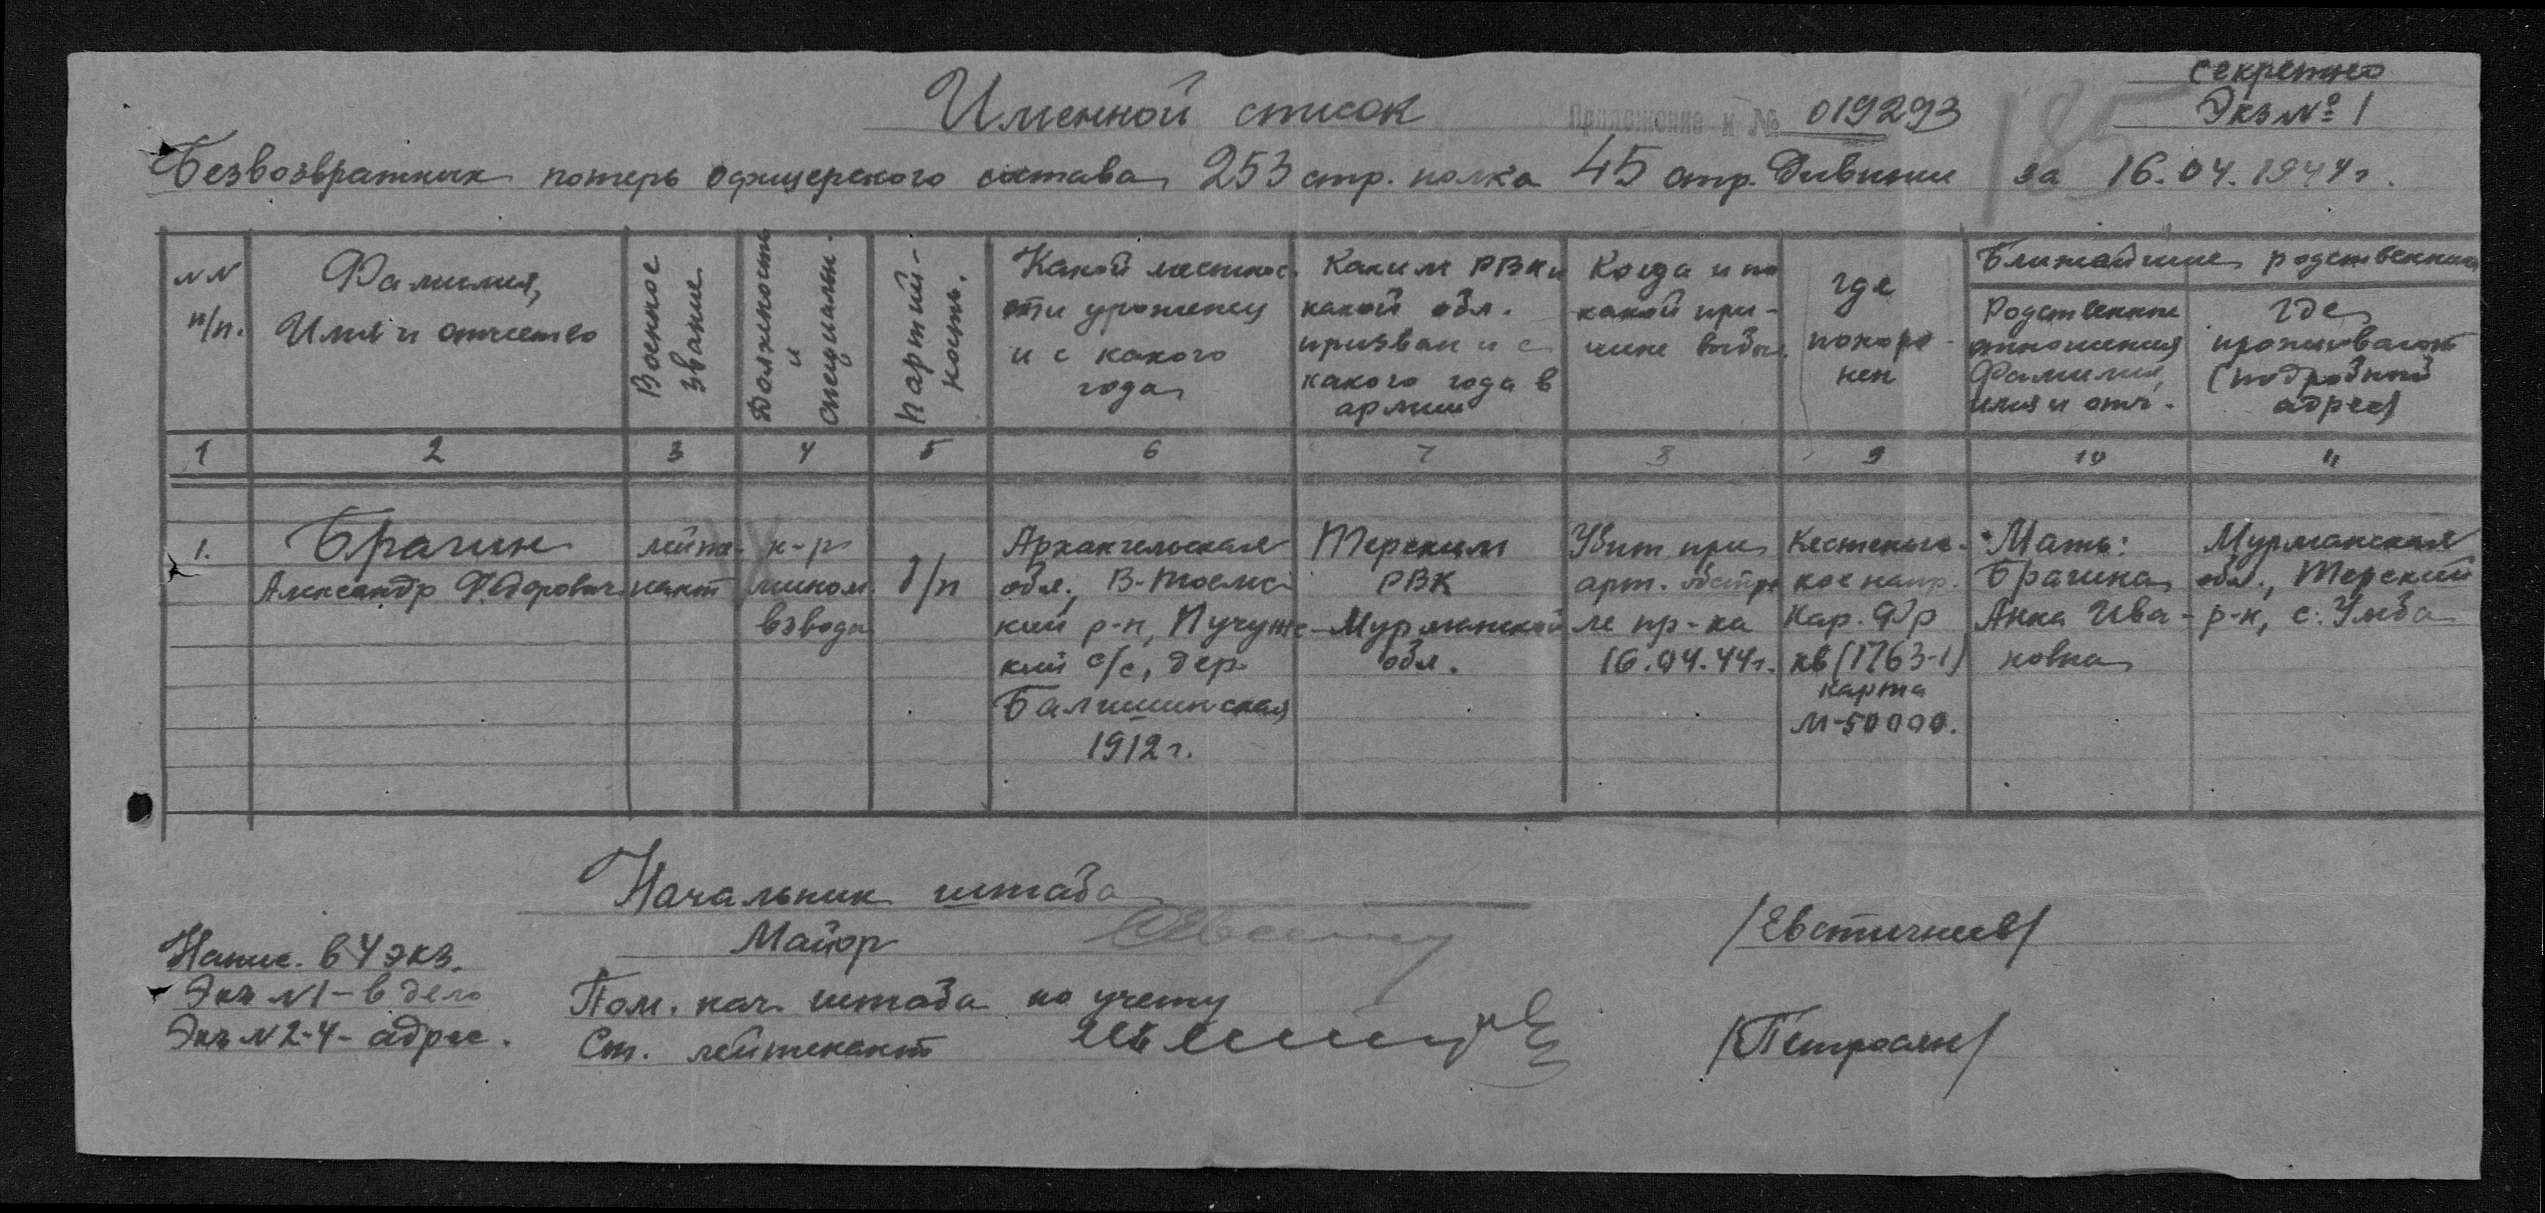 секретно
Экз № 1
Именной список
Приложение к № 019293
185
Безвозвратных потерь офицерского состава 253 стр. полка 45 стр. Дивизии за 16.04.1944 г.
№ №
п/п.
Фамилия,
Имя и отчество
Военное
звание
Должность
и
специальн.
Партий-
ность.
Какой местнос-
сти уроженец
и с какого
года
Каким РВК и
какой обл.
призван и с
какого года в
армии
Когда и по
какой при-
чине выбыл
где
похоро-
нен
Ближайшие родственники
Родственные
отношения
Фамилия,
имя и отч.
где
проживают
(подробный
адрес)
1 2 3 4 5 6 7 8 9 10 11
1.
Брагин
Александр Федорович
лейте-
нант
к-р
мином.
взвода
б/п
Архангельская
обл., В-Тоемс-
кий р-н, Пучужс-
кий с/с, дер.
Балушинская
1912 г.
Терским
РВК
Мурманской
обл.
Убит при
арт. обстре
ле пр-ка
16.04.44г.
Кестеньг-
ское напр.
Кар. Фр
кв (1763-1)
карта
М-50000.
Мать:
Брагина
Анна Ива-
новна
Мурманская
обл., Терский
р-н, с. Умба
Начальник штаба
Майор
/Евстигнеев/
Напис. в 4 экз.
Экз №1 - в дело
Экз №2-4 - адрес.
Пом. нач. штаба по учету
Ст. лейтенант
/Петросян/